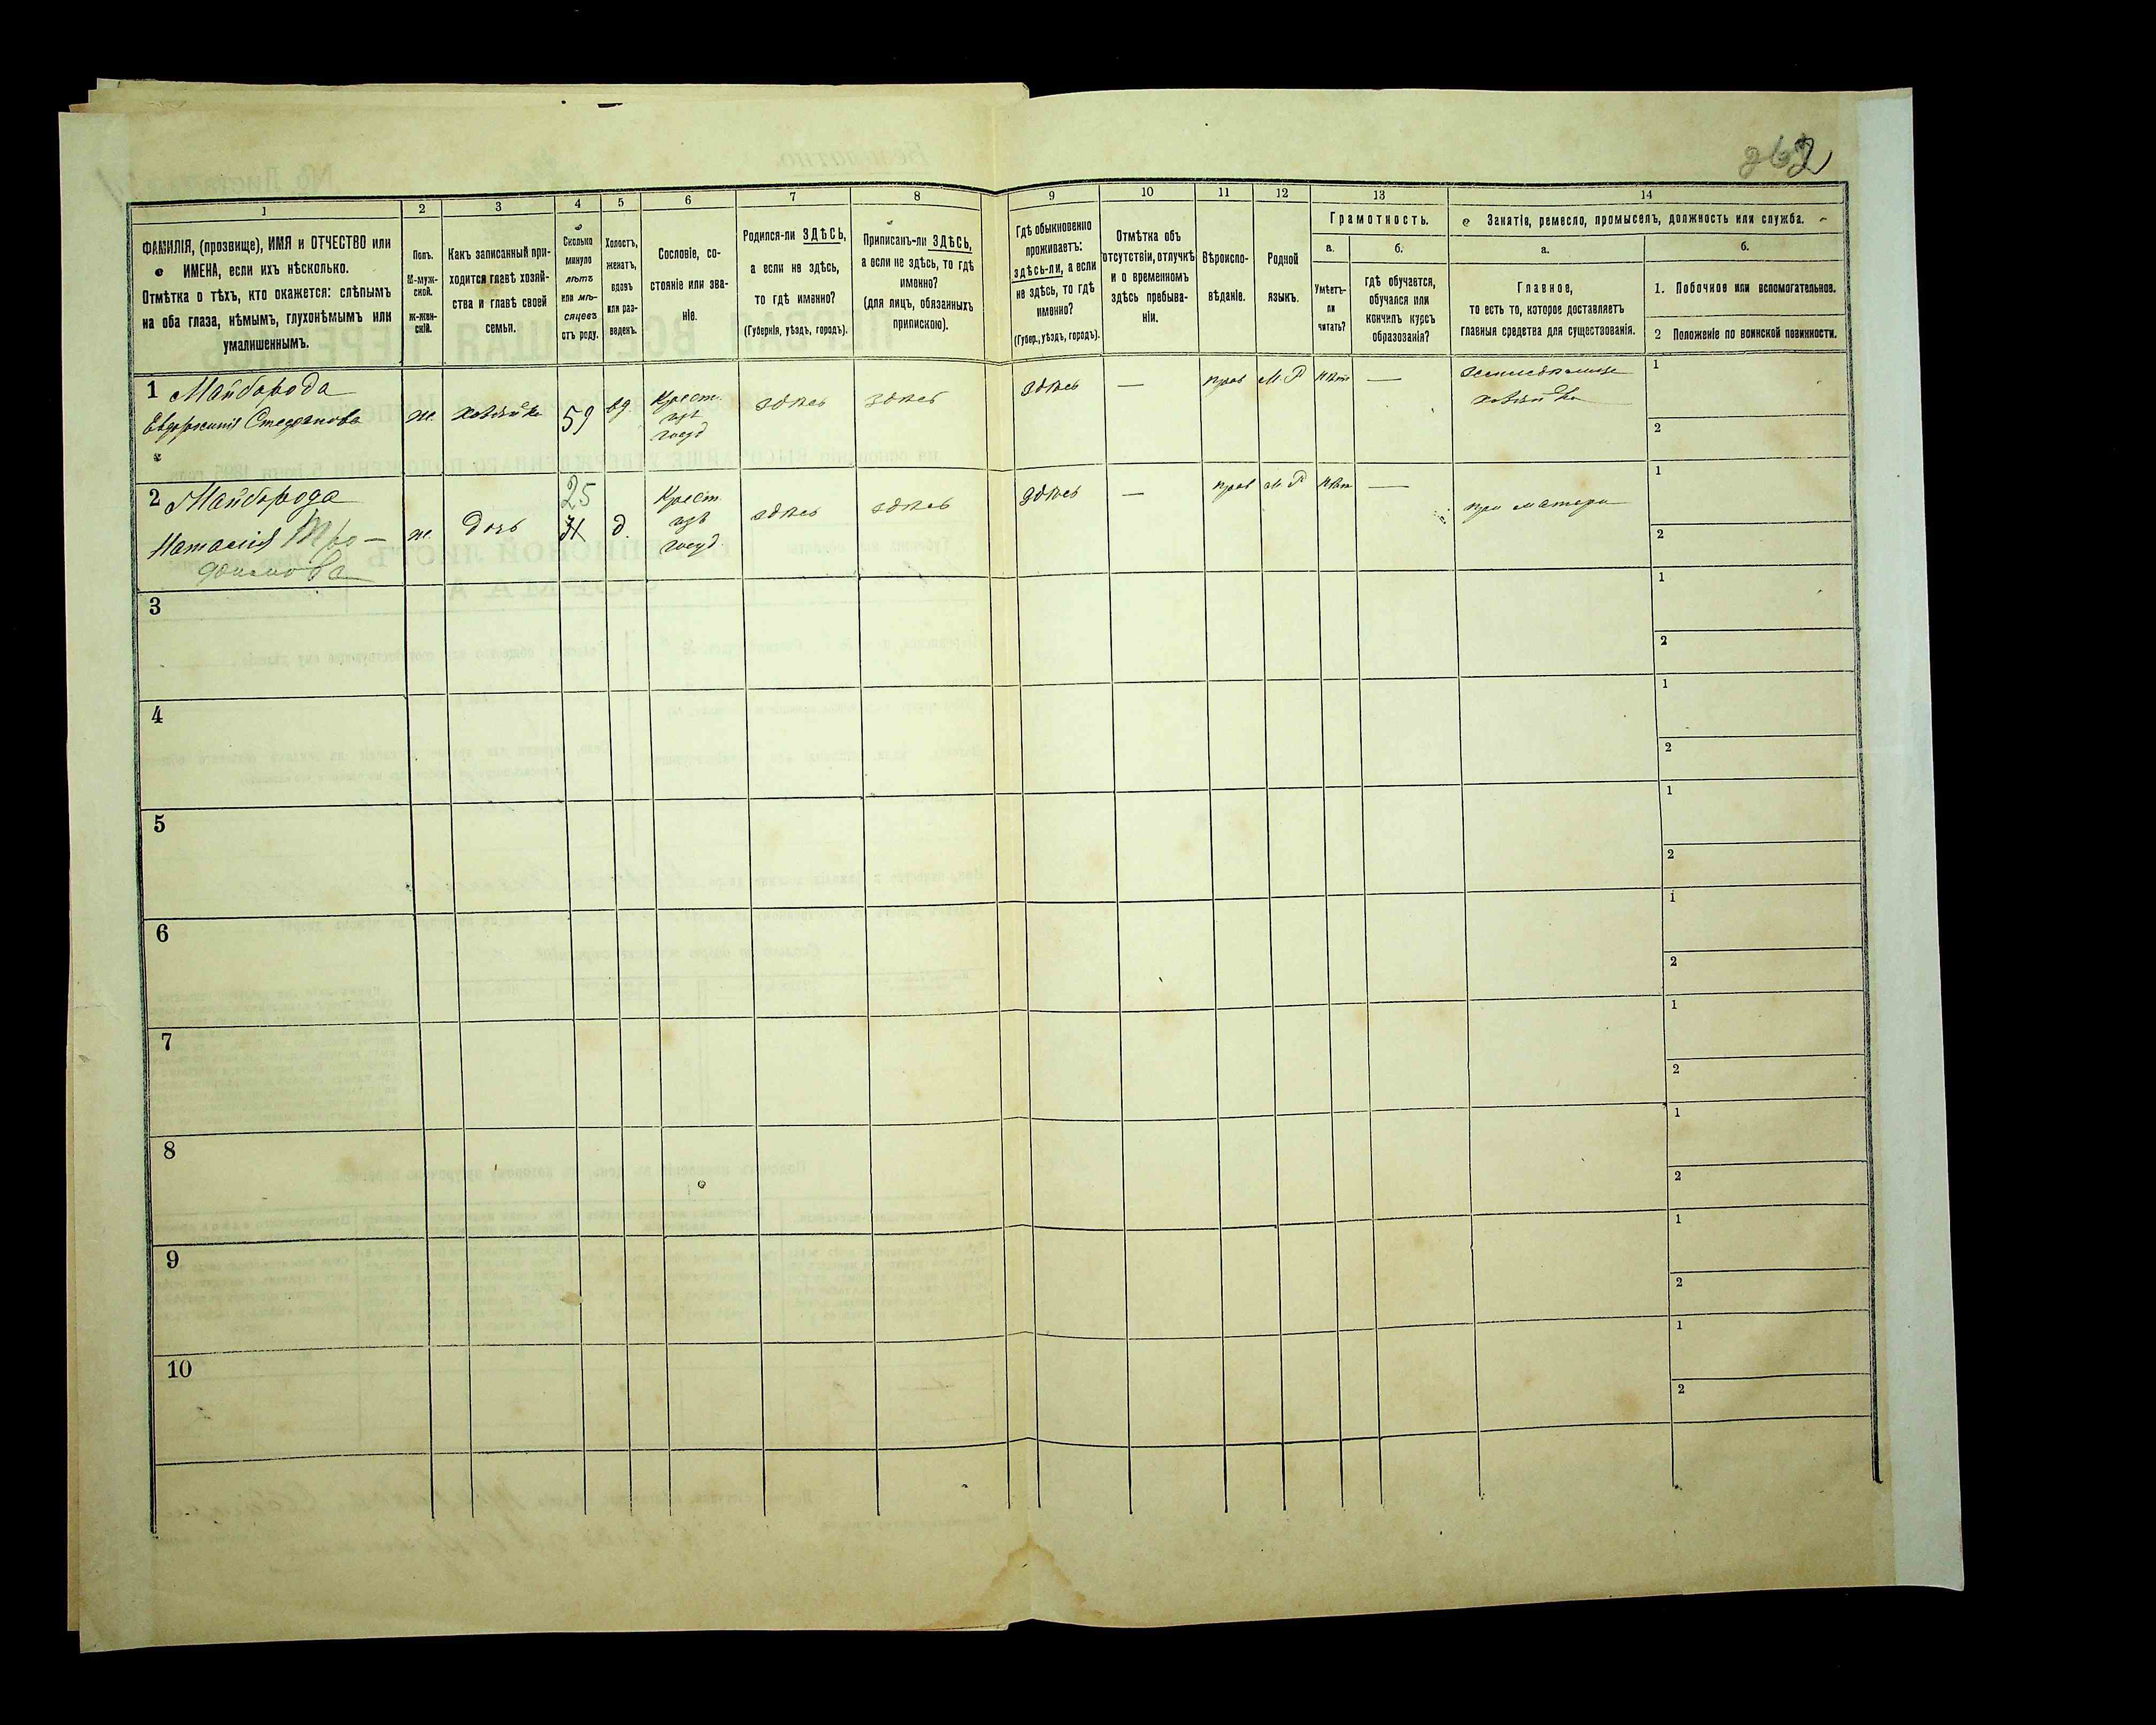 262
1 2 3 4 5 6 7 8 9 10 11 12 13 14
ФАМИЛІЯ, (прозвище), ИМЯ и ОТЧЕСТВО или
ИМЕНА, если ихъ нѣсколько.
Отмѣтка о тѣхъ, кто окажется: слѣпымъ
на оба глаза, нѣмымъ, глухонѣмымъ или
умалишеннымъ.
Полъ.
М-муж-
ской.
Ж-жен-
скій.
Какъ записанный при-
ходится главѣ хозяй-
ства и главѣ своей
семьи.
Сколько
минуло
лѣтъ
или мѣ-
сяцевъ
отъ роду.
Холостъ,
женатъ,
вдовъ
или раз-
веденъ.
Сословіе, со-
стояніе или зва-
ніе.
Родился-ли ЗДѢСЬ,
а если не здѣсь,
то гдѣ именно?
(Губернія, уѣздъ, городъ).
Приписанъ-ли ЗДѢСЬ,
а если не здѣсь, то гдѣ
именно?
(для лицъ, обязанныхъ
припискою).
Гдѣ обыкновенно
проживаетъ:
здѣсь-ли, а если
не здѣсь, то гдѣ
именно?
(Губер., уѣздъ, городъ).
Отмѣтка объ
отсутствіи, отлучкѣ
и о временномъ
здѣсь пребыва-
ніи.
Вѣроиспо-
вѣданіе.
Родной
языкъ.
Грамотность.
а.
Умѣетъ-
ли
читать?
б.
гдѣ обучается,
обучался или
кончилъ курсъ
образованія?
Занятія, ремесло, промыселъ, должность или служба.
а.
Главное,
то есть то, которое доставляетъ
главныя средства для существованія.
б.
1. Побочное или вспомогательное.
2 Положеніе по воинской повинности.
1 Майборода
Евдокия Стефанова
ж. хозяйка 59 вд Крест.
изъ
госуд
здѣсь здѣсь здѣсь — прав М. Р нѣт —
хозяйка
1
2
2 Майборода
Наталия Тро-
фимова
ж. дочь 25 д. Крест.
изъ
госуд.
здѣсь здѣсь здѣсь — прав М. Р нѣт — при матери
1
2
3
1
2
4
1
2
5
1
2
6
1
2
7
1
2
8
1
2
9
1
2
10
1
2